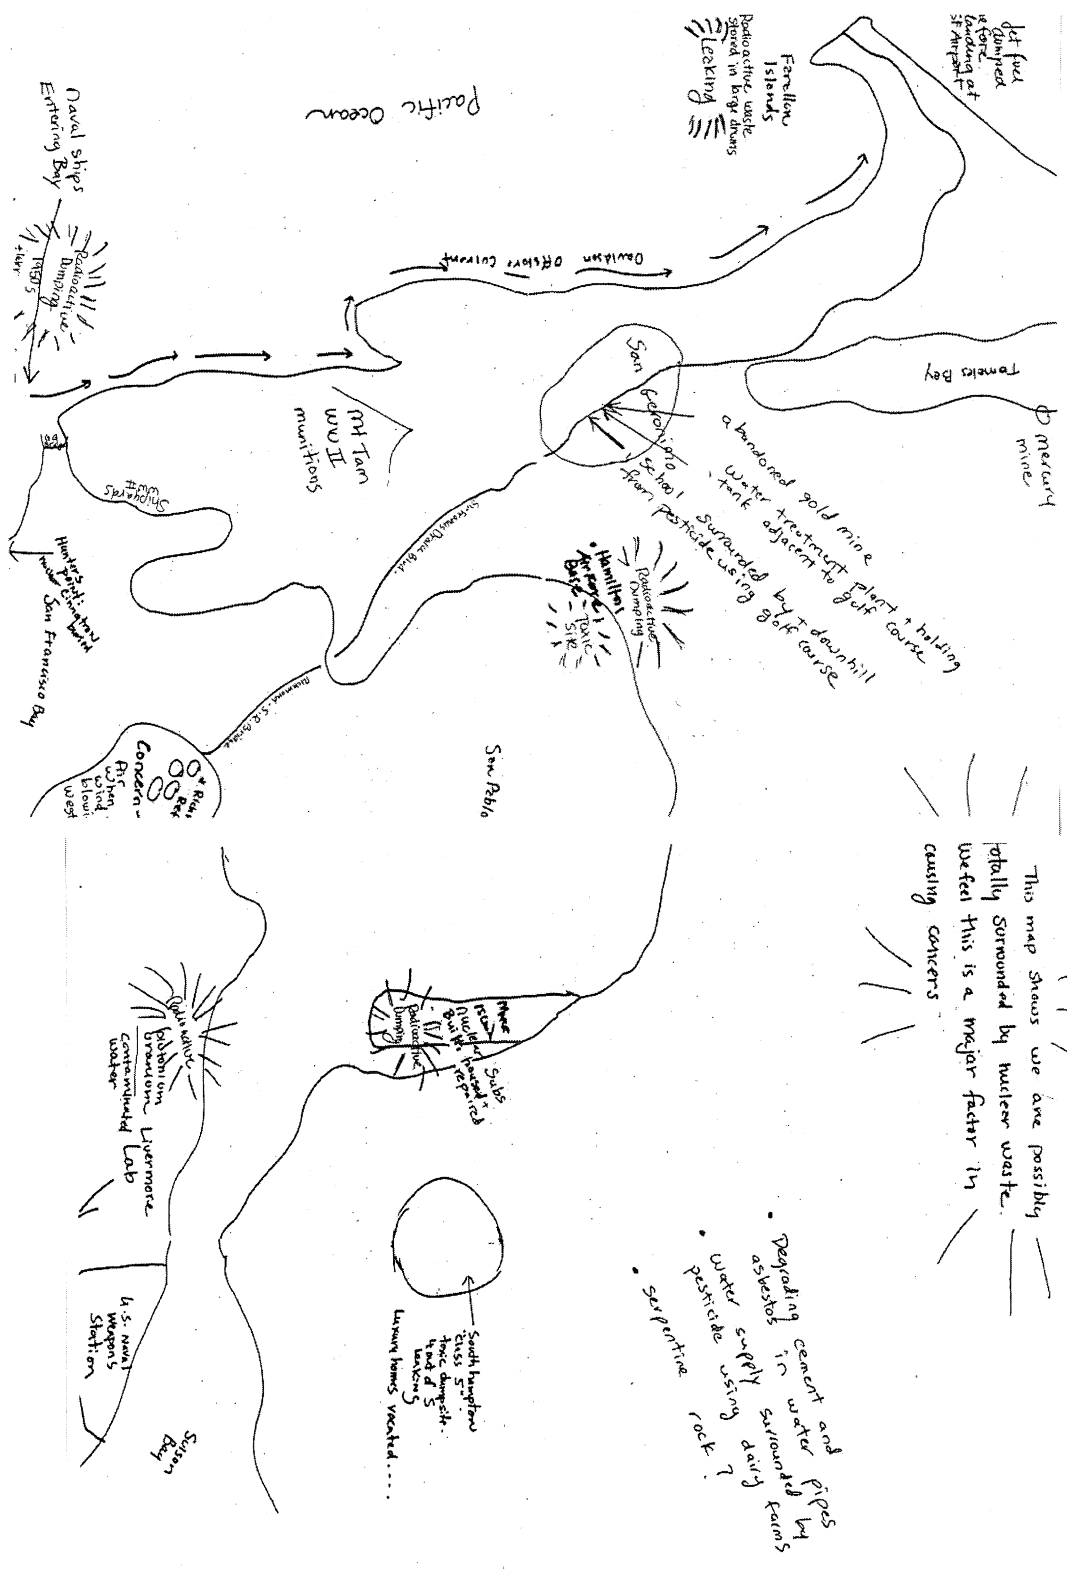 Jet fuel
dumped
before
landing at
SF Airport
Farallon
Islands
Radioactive waste
stored in large drums
Leaking
Pacific Ocean
Naval ships
Entering Bay
Radioactive
Dumping
1950's
+ later
Davidson Offshore Current
Tomales Bay
mercury
mine
San Geronimo
abandoned gold mine
water treatment plant + holding
tank adjacent to golf course
school surrounded by + downhill
from pesticide using golf course
Mt Tam
WW II
munitions
Shipyards
WW II
Sir Francis Drake Blvd.
Hunters
point:
buried
San Francisco Bay
Radioactive
Dumping
• Hamilton
Airforce
Base - Toxic
Site
Richmond - S.R. Bridge
San Pablo
Concern -
Air
when
wind
blowi
west
* Rich
Ref
This map shows we are possibly
totally surrounded by nuclear waste.
we feel this is a major factor in
causing cancers
Mare
Island
nuclear subs
Built, housed +
repaired
Radioactive
Dumping
Radioactive
plutonium
uranium Livermore
contaminated Lab
water
U.S. Naval
Weapons
Station
Suison
Bay
Southhampton
"class 5"
toxic dumpsite..
4 out of 5
leaking
Luxury homes vacated....
• Degrading cement and
asbestos in water pipes
• water supply surrounded by
pesticide using dairy farms
• serpentine rock?